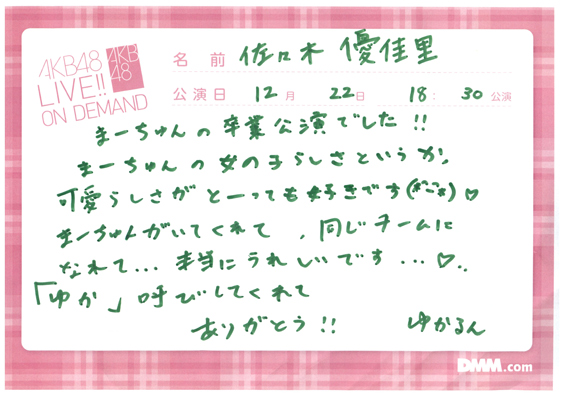 AKB48
LIVE!!
ON DEMAND
AKB
48
名 前 佐々木 優佳里
公演日 12月 22日 18:30公演
まーちゅんの卒業公演でした!!
まーちゅんの女の子らしさというか、
可愛らしさがとーっても好きです(*´˘`*)♡
まーちゅんがいてくれて、同じチームに
なれて...本当にうれしいです...♡..
「ゆか」呼びしてくれて
ありがとう!! ゆかるん
DMM.com